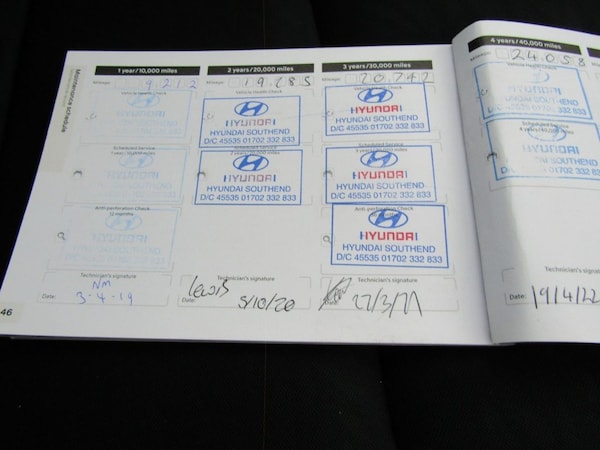 Maintenance schedule
1 year/10,000 miles
Mileage: 9,212
Vehicle Health Check
Scheduled Service
1 year/10,000 miles
HYUNDAI
Anti-perforation Check
12 months
HYUNDAI
Technician's signature
NM
Date: 3-4-19
46
2 years/20,000 miles
Mileage: 19,285
Vehicle Health Check
HYUNDAI
HYUNDAI SOUTHEND
D/C 45535 01702 332 833
Scheduled Service
HYUNDAI
HYUNDAI SOUTHEND
D/C 45535 01702 332 833
Technician's signature
Lewis
Date: 5/10/20
3 years/30,000 miles
Mileage: 20,742
Vehicle Health Check
HYUNDAI
HYUNDAI SOUTHEND
D/C 45535 01702 332 833
Scheduled Service
3 years/30,000 miles
HYUNDAI
HYUNDAI SOUTHEND
D/C 45535 01702 332 833
Anti-perforation Check
HYUNDAI
HYUNDAI SOUTHEND
D/C 45535 01702 332 833
Technician's signature
4 years/40,000 miles
Mileage: 24,058
Vehicle Health Check
HYUNDAI SOUTHEND
D/C 45535 01702 332 833
Scheduled Service
4 years/40,000 miles
HYUNDAI SOUTHEND
D/C 45535 01702 332 833
Technician's signature
Date: 19/4/22